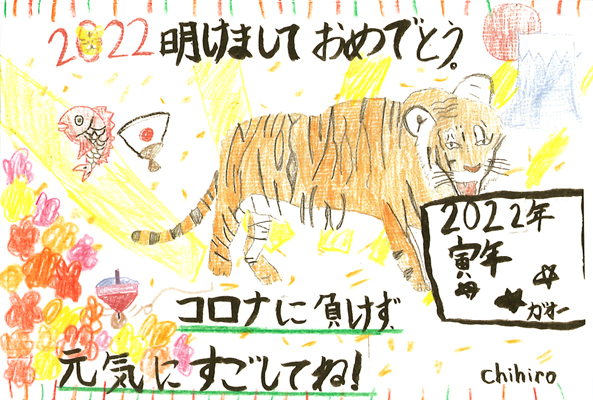 2022 明けまして おめでとう。
2022年
寅年
ガオー
コロナに負けず
元気にすごしてね!
Chihiro